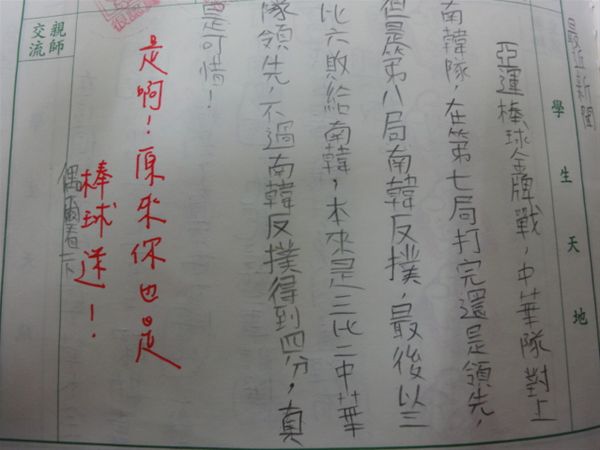 學生天地
最近新聞
亞運棒球金牌戰，中華隊對上
南韓隊，在第七局打完還是領先，
但是第八局南韓反撲，最後以三
比六敗給南韓，本來是三比二中華
隊領先，不過南韓反撲得到四分，真
是可惜！
是啊！原來你也是
棒球迷！
偶爾看一下
親師交流